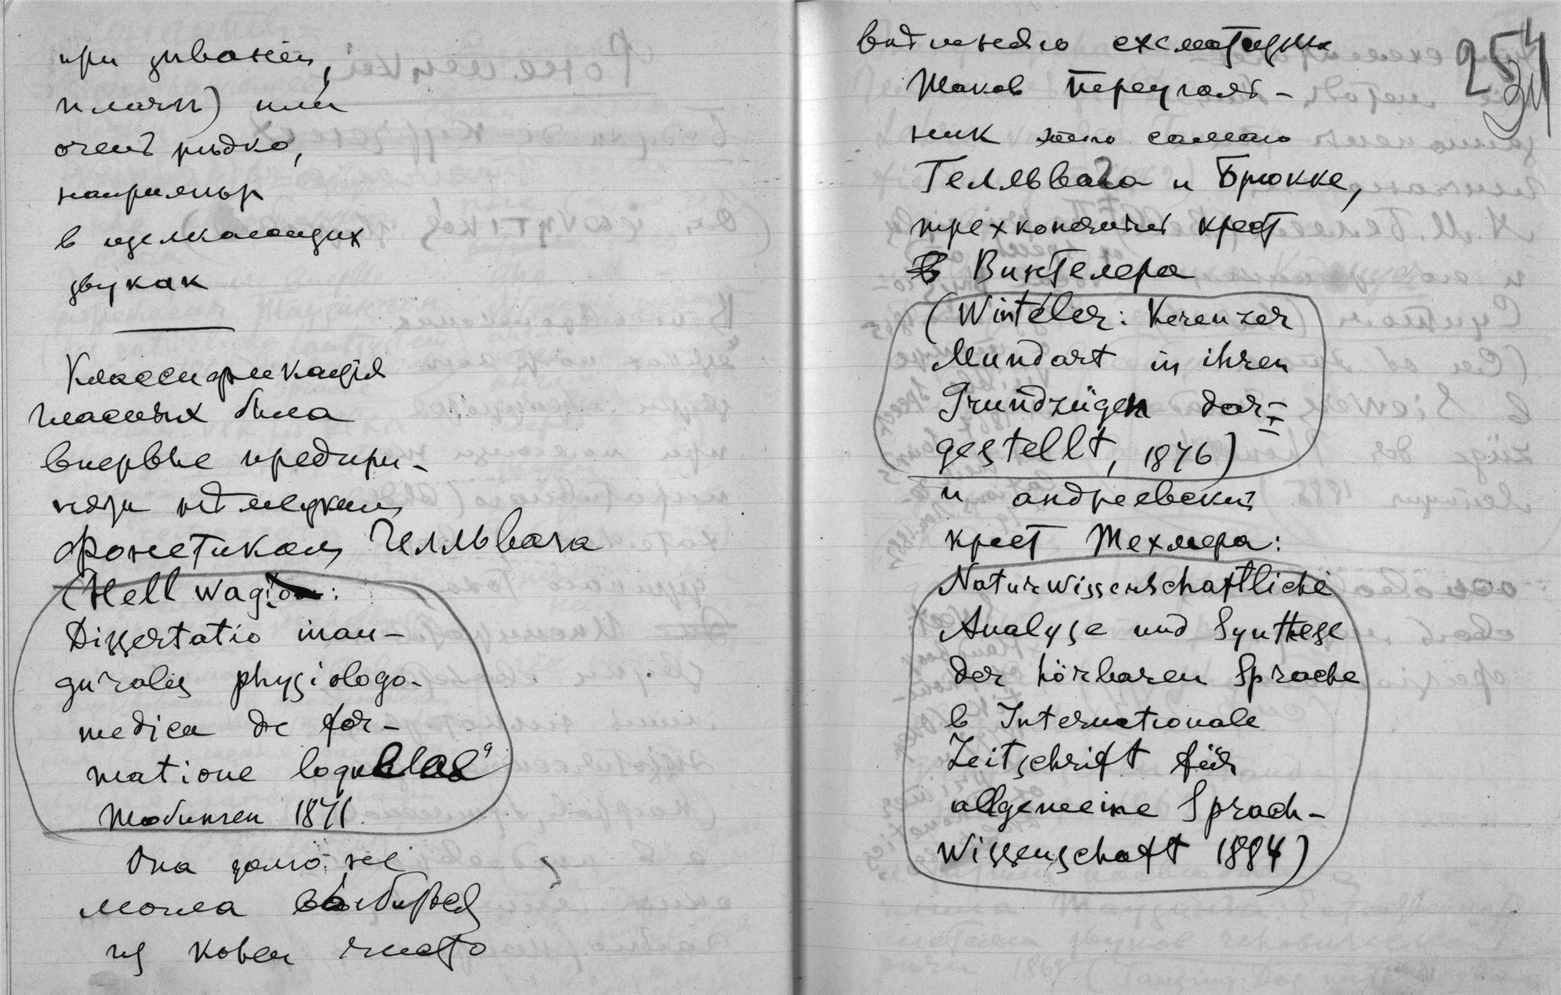 при зивании,
плачѣ) или
очень рѣдко,
напримѣръ
в щелкающих
звуках
Классификація
гласных была
впервые предпри-
нята нѣмецким
фонетиком Гелльвага
(Hellwag:
Dissertatio inau-
guralis physiologo-
medica de for-
matione loquelae"
Тюбинген 1871.
Она долго не
могла выбиться
из ковеи чисто
схематизма
Таков треуголь-
ник самаго
Гелльвага и Брюкке,
трехконечный крест
Винтелера
(Winteler: Kerenzer
Mundart in ihren
Grundzügen dar-
gestellt, 1876)
и андреевский
крест Техмера:
Naturwissenschaftliche
Analyse und Synthese
der hörbaren Sprache
в Internationale
Zeitschrift für
allgemeine Sprach-
wissenschaft 1884)